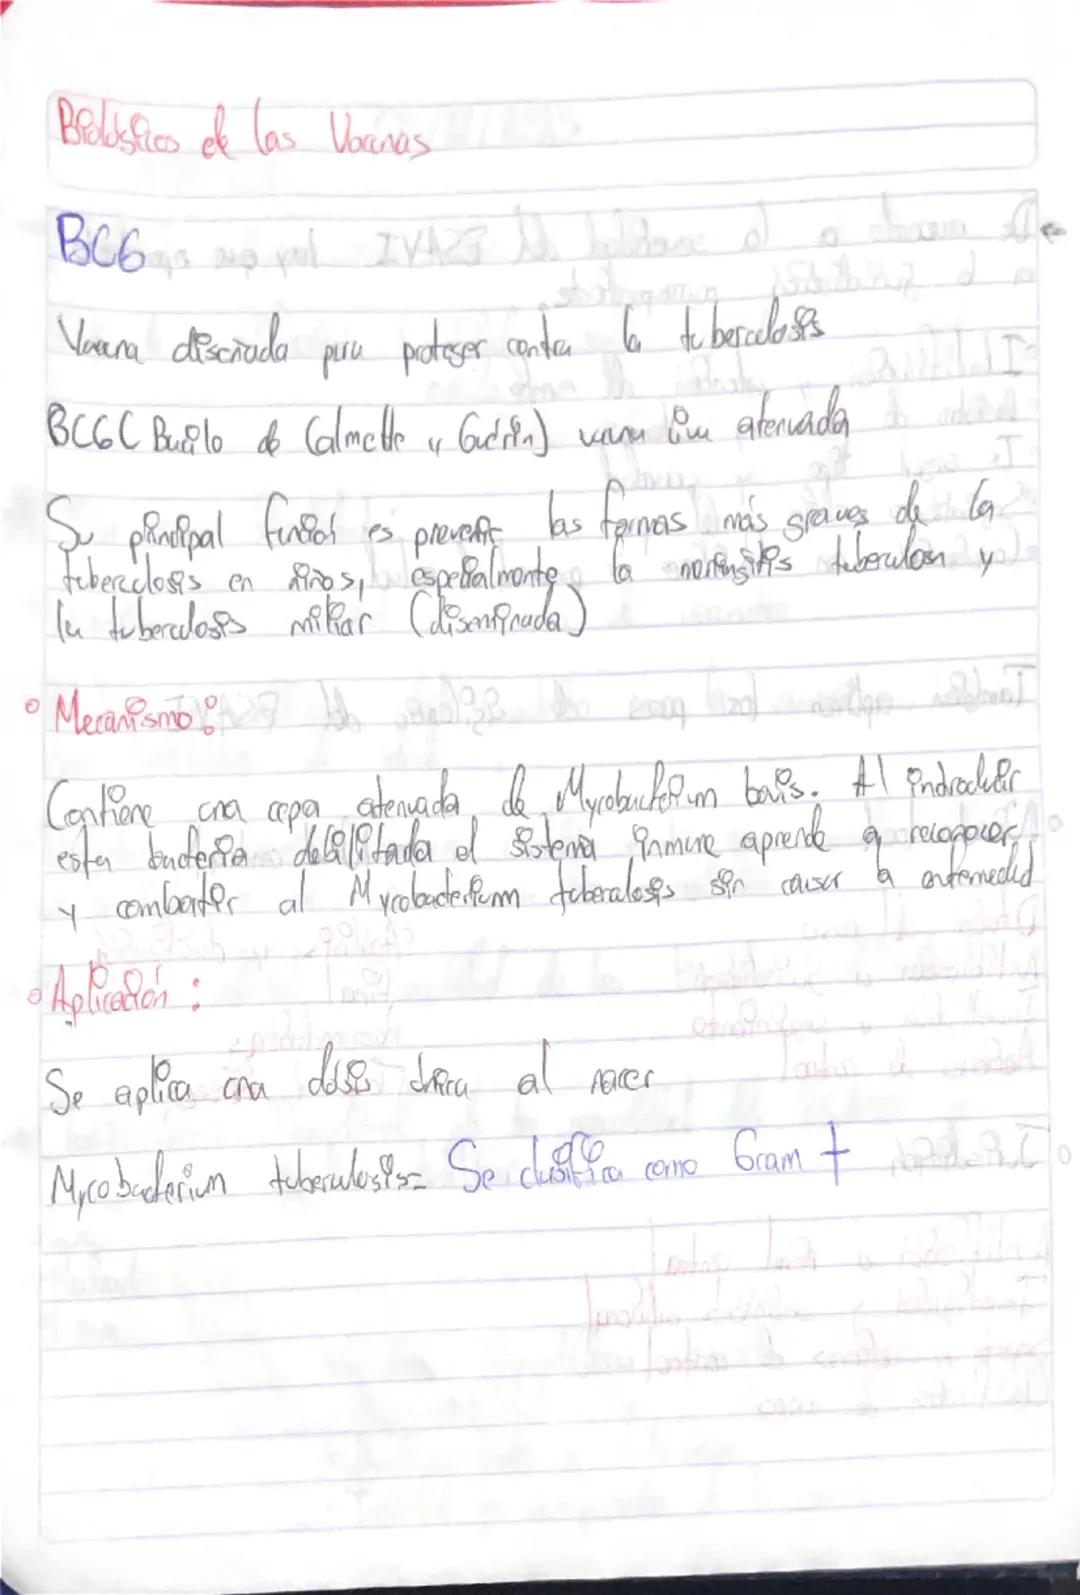 Biológico de las Vacunas
BCG
Vacuna diseñada para proteger contra la tuberculosis
BCG ( Bacilo de Calmette y Guérin) vacuna viva atenuada
Su principal función es prevenir las formas más graves de la
tuberculosis en niños, especialmente la meningitis tuberculosa y
la tuberculosis miliar (diseminada)
Mecanismo:
Contiene una cepa atenuada de Mycobacterium bovis. Al introducir
esta bacteria debilitada el sistema inmune aprende a reconocer
y combatir al Mycobacterium tuberculosis sin causar la enfermedad
Aplicación:
Se aplica una dosis única al nacer
Mycobacterium tuberculosis= Se clasifica como Gram +